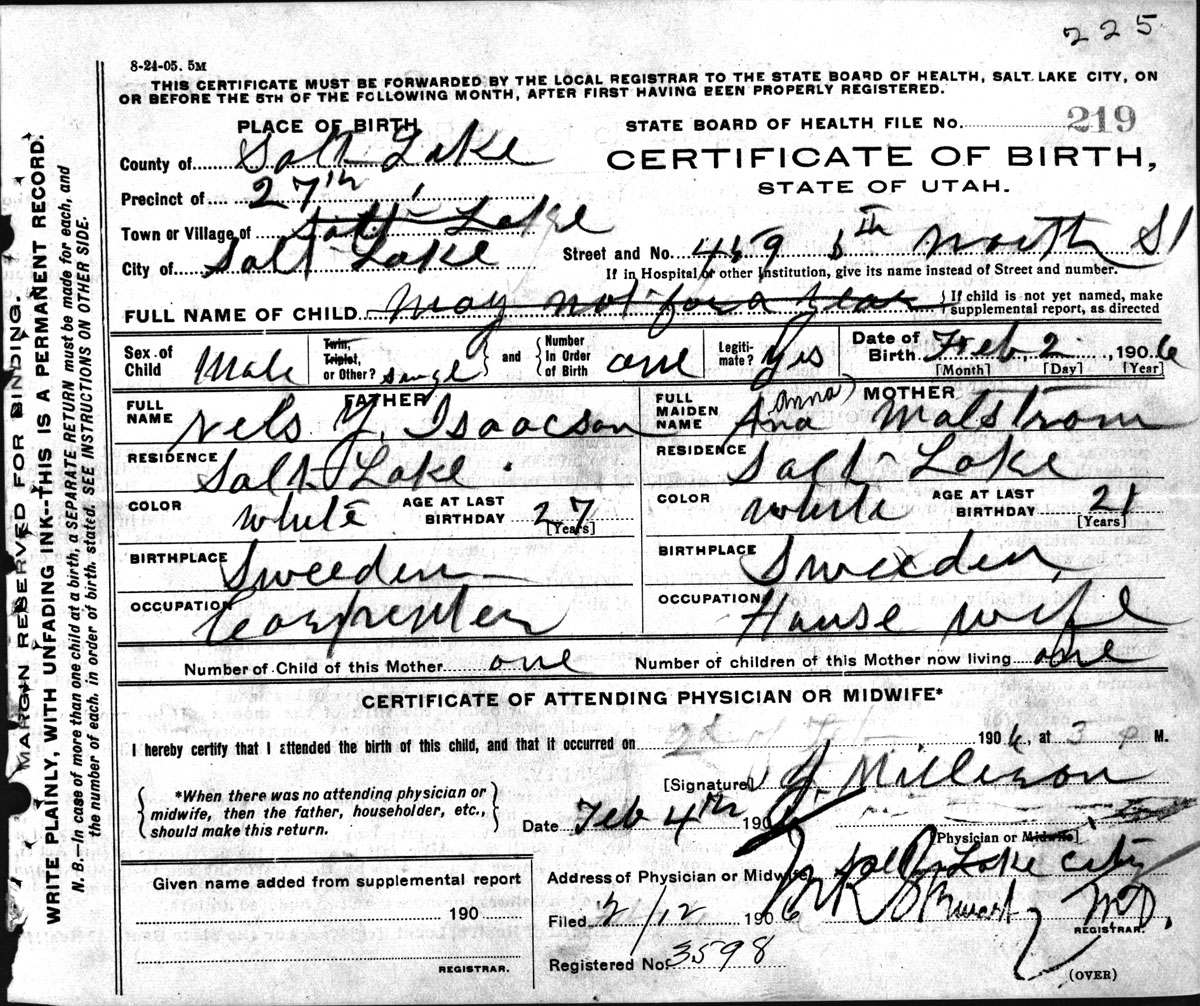 225
8-24-05. 5M
THIS CERTIFICATE MUST BE FORWARDED BY THE LOCAL REGISTRAR TO THE STATE BOARD OF HEALTH, SALT LAKE CITY, ON
OR BEFORE THE 5TH OF THE FOLLOWING MONTH, AFTER FIRST HAVING BEEN PROPERLY REGISTERED.
PLACE OF BIRTH
STATE BOARD OF HEALTH FILE No. 219
County of Salt Lake
CERTIFICATE OF BIRTH,
STATE OF UTAH.
Precinct of 27th
Town or Village of Salt Lake
City of Salt Lake
Street and No. 5th North St
If in Hospital or other Institution, give its name instead of Street and number.
FULL NAME OF CHILD may not for a year
If child is not yet named, make
supplemental report, as directed
Sex of Child Male
Twin, Triplet, or Other? single
and Number In Order of Birth one
Legiti-mate? Yes
Date of Birth Feb, 2, 1906
[Month] [Day] [Year]
FATHER
FULL NAME Nels Y. Isaacson
RESIDENCE Salt Lake.
COLOR White
AGE AT LAST BIRTHDAY 27
[Years]
BIRTHPLACE Sweeden
OCCUPATION Carpenter
MOTHER
FULL MAIDEN NAME Ana (Anna) Malstrom
RESIDENCE Salt Lake
COLOR White
AGE AT LAST BIRTHDAY 21
[Years]
BIRTHPLACE Sweeden,
OCCUPATION House wife
Number of Child of this Mother one
Number of children of this Mother now living one
CERTIFICATE OF ATTENDING PHYSICIAN OR MIDWIFE*
I hereby certify that I attended the birth of this child, and that it occurred on 2d of Feb 1906, at 3 P M.
*When there was no attending physician or
midwife, then the father, householder, etc.,
should make this return.
[Signature]
Date Feb 4th 190
[Physician or Midwife]
Address of Physician or Midwife Salt Lake City
Given name added from supplemental report
190
REGISTRAR.
Filed 2/12 1906 M.D.
REGISTRAR.
Registered No. 3598
(OVER)
MARGIN RESERVED FOR BINDING.
WRITE PLAINLY, WITH UNFADING INK--THIS IS A PERMANENT RECORD.
N. B.—In case of more than one child at a birth, a SEPARATE RETURN must be made for each, and
the number of each, in order of birth, stated. SEE INSTRUCTIONS ON OTHER SIDE.